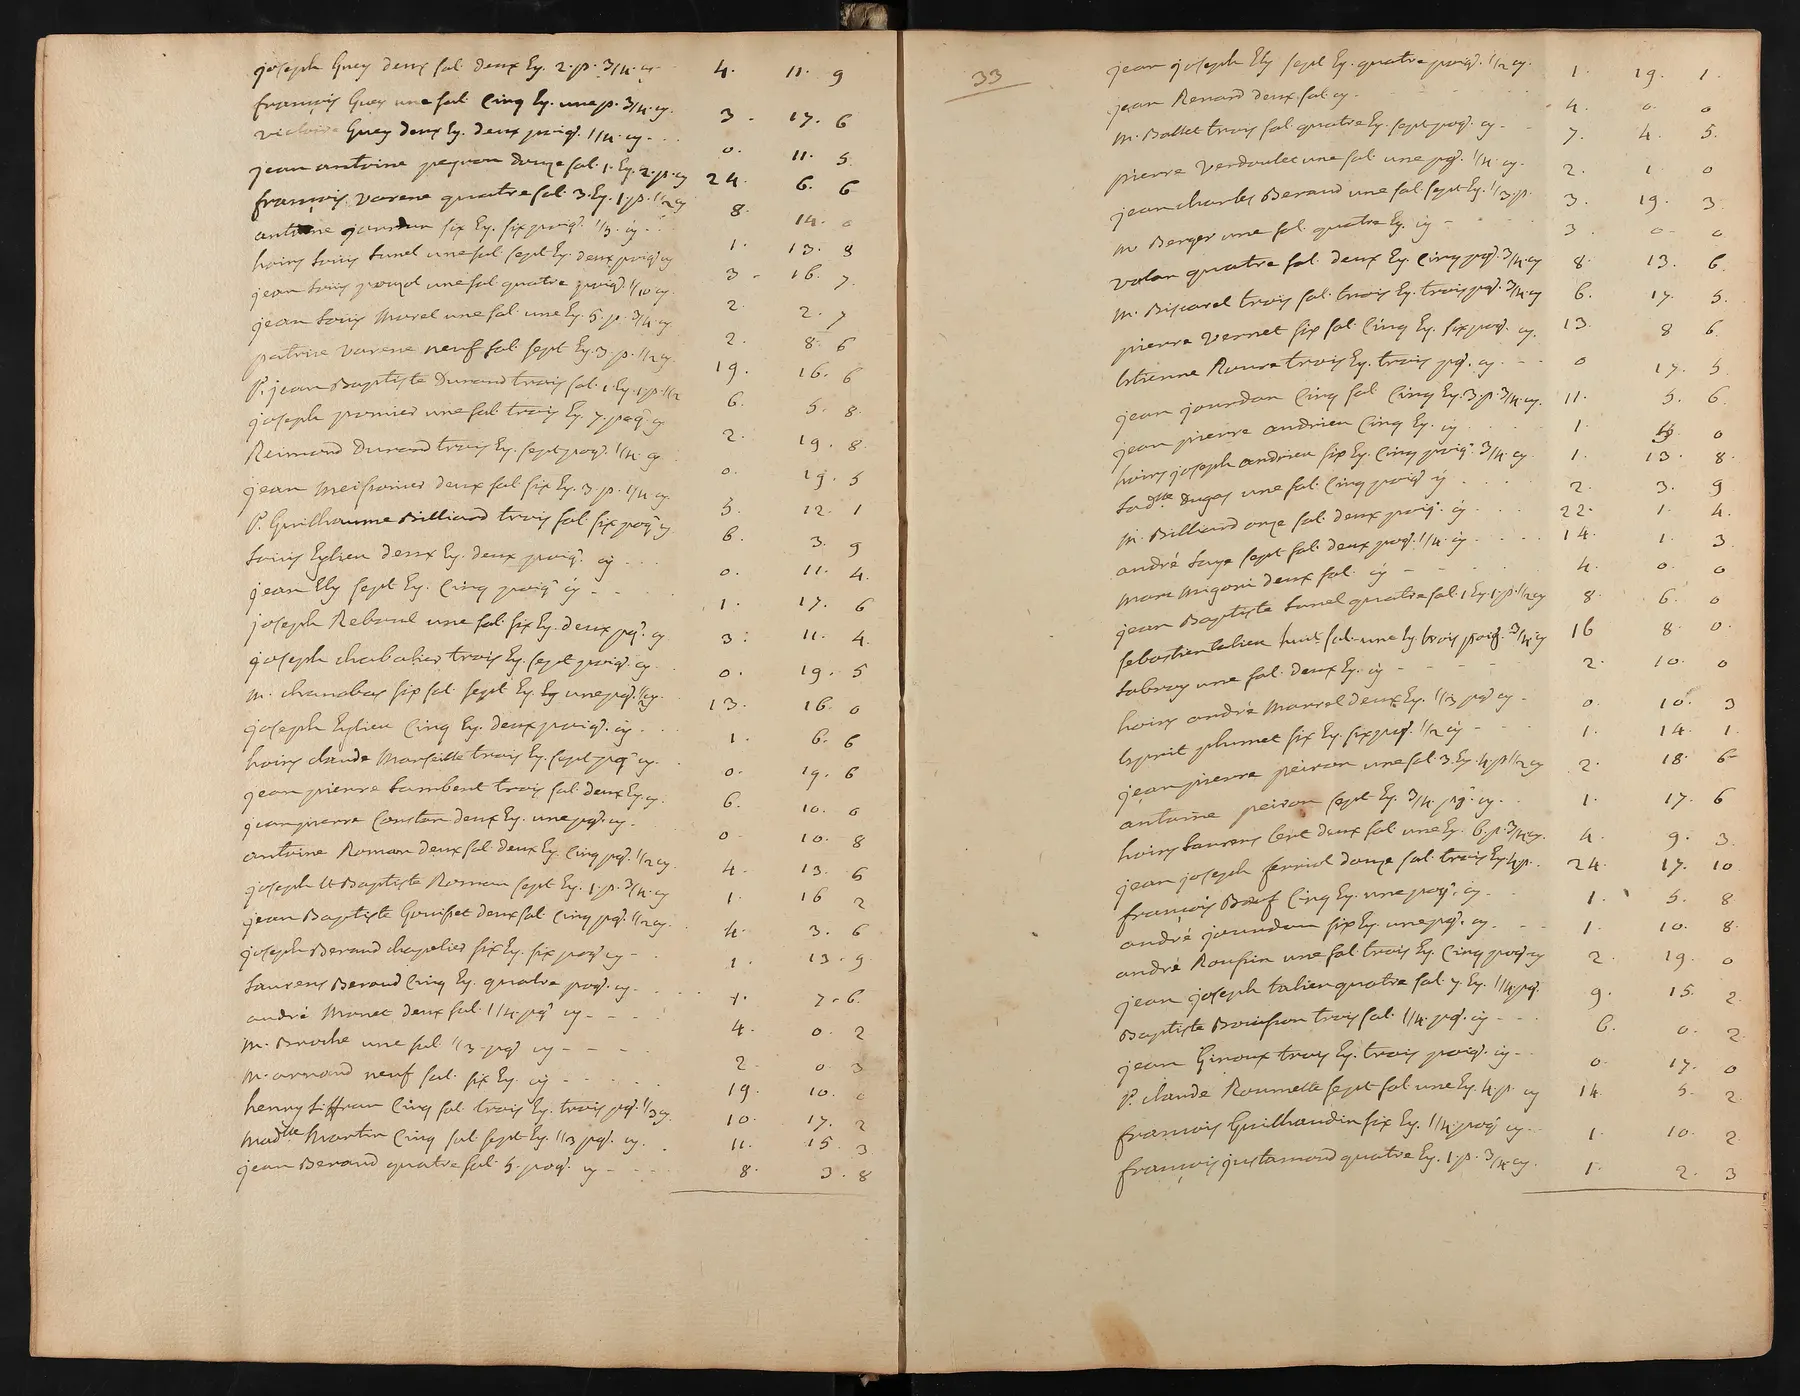 joseph Guey deux sal. deux Ey. 2. p. 3/4. cy 4. 11. 9
françois Guey une sal. Cinq Ey. une p. 3/4. cy. 3. 17. 6
victoire Guey deux Ey. deux poig. 1/4. cy 0. 11. 5
jean antoine peyron douze sal. 1. Ey. 2. p. cy 24. 6. 6
françois varene quatre sal. 3. Ey. 1. p. 1/2 cy 8. 14. 0
antoine jourdan six Ey. six poig. 1/3. cy 1. 13. 8
hoirs Louis Lunel une sal. sept Ey. deux poig. cy 3. 16. 7
jean Louis pouzol une sal. quatre poig. 1/10 cy. 2. 2. 7
jean Louis Morel une sal. une Ey. 5. p. 3/4 cy. 2. 8. 6
patrice varene neuf sal. sept Ey. 3. p. 1/2 cy. 19. 16. 6
Sr. jean Baptiste Durand trois sal. 1. Ey. 1. p. 1/2 6. 5. 8.
joseph premier une sal. trois Ey. 7. poig. cy 2. 19. 8.
Reimond Durand trois Ey. sept poig. 1/4. cy 0. 19. 5
jean meissonier deux sal. six Ey. 3. p. 1/4 cy. 5. 12. 1
Sr. Guilhaume Billiard trois sal. six poig. cy 6. 3. 9
Louis Eylieu deux Ey. deux poig. cy 0. 11. 4.
jean Ely sept Ey. Cinq poig. cy 1. 17. 6
joseph Reboul une sal. six Ey. deux pg. cy 3. 11. 4
joseph chabalier trois Ey. sept poig. cy 0. 19. 5
m. chanabas six sal. sept Ey. Ey une pg. 1/2 cy. 13. 16. 0
joseph Eylieu Cinq Ey. deux poig. cy 1. 6. 6
hoirs claude Marseille trois Ey. sept pg. cy. 0. 19. 6
jean pierre Lambert trois sal. deux Ey. cy. 6. 10. 0
jean pierre Constan deux Ey. une pg. cy. 0 10. 8
antoine Roman deux sal. deux Ey. Cinq pg. 1/2 cy. 4. 13. 6
joseph et Baptiste Roman sept Ey. 1. p. 3/4. cy 1. 16 2
jean Baptiste Gouisset deux sal. Cinq pg. 1/2 cy. 4. 3. 6
joseph Beraud chapelier six Ey. six poig. cy 1. 13. 9
Laurens Beraud Cinq Ey. quatre poig. cy 1. 7. 6.
andré Monet deux sal. 1/4. pg. cy 4. 0. 2
m. Broche une sal. 1/3. pg. cy 2. 0. 3
m. arnaud neuf sal. six Ey. cy 19. 10. 0
henry Siffran Cinq sal. trois Ey. trois pg. 1/3 cy. 10. 17. 2
madlle Martin Cinq sal. sept Ey. 1/3 pg. cy. 11. 15. 3
jean Beraud quatre sal. 5. poig. cy 8. 3. 8
33
jean joseph Ely sept Ey. quatre poig. 1/2 cy. 1. 19. 1.
jean Renard deux sal. cy 4. 0. 0
m. Ballet trois sal. quatre Ey. sept poig. cy 7. 4. 5.
pierre verdoulet une sal. une pg. 1/4. cy. 2. 1. 0
jean charles Beraud une sal. sept Ey. 1/3 p. 3. 19. 3
m. Berger une sal. quatre Ey. cy 3. 0. 0
valan quatre sal. deux Ey. Cinq pg. 3/4. cy 8. 13. 6
m. Biscarel trois sal. trois Ey. trois pg. 3/4. cy 6. 17. 5
pierre vernet six sal. Cinq Ey. six poig. cy. 13. 8 6
Etienne Roure trois Ey. trois pg. cy. 0 17. 5
jean jourdan Cinq sal. Cinq Ey. 3. p. 3/4. cy. 11. 5. 6
jean pierre andrieu Cinq Ey. cy 1. 0
hoirs joseph andrieu six Ey. Cinq poig. 3/4. cy. 1. 13. 8
Ladlle. Dugas une sal. Cinq poig. cy 2. 3. 9
m. Billiard onze sal. deux poig. cy 22. 1. 4.
andré Laye sept sal. deux poig. 1/4. cy 14. 1. 3
Marc Migoni deux sal. cy 4. 0. 0
jean Baptiste Lunel quatre sal. 1 Ey. 1. p. 1/2 cy 8. 6. 0
sebastien talieu huit sal. une Ey. trois poig. 3/4. cy 16 8. 0
Labroy une sal. deux Ey. cy 2. 10. 0
hoirs andré Marcel deux Ey. 1/3 pg. cy 0. 10. 3
Esprit plumet six Ey. six pg. 1/2 cy 1. 14. 1.
jean pierre peiron une sal. 3. Ey. 4. p. 1/2 cy 2. 18. 6
antoine peiron sept Ey. 3/4. pg. cy. 1. 17. 6
hoirs Laurens Cert deux sal. une Ey. 6. p. 3/4 cy. 4. 9. 3
jean joseph ferriol douze sal. trois Ey. 4 p. 24. 17. 10
françois Bœuf Cinq Ey. une poig. cy 1. 5. 8
andré jourdan six Ey. une pg. cy 1. 10. 8.
andré Roussin une sal. trois Ey. Cinq poig. cy 2. 19. 0
jean joseph talien quatre sal. 7. Ey. 1/4. pg. 9. 15. 2
Baptiste Bouisson trois sal. 1/4. pg. cy 6. 0. 2
jean Giroux trois Ey. trois poig. cy 0. 17. 0
Sr. claude Roumette sept sal. une Ey. 4. p. cy 14. 5. 2
françois Guilhaudin six Ey. 1/4. poig. cy 1. 10. 2
françois justamond quatre Ey. 1. p. 3/4. cy. 1. 2. 3